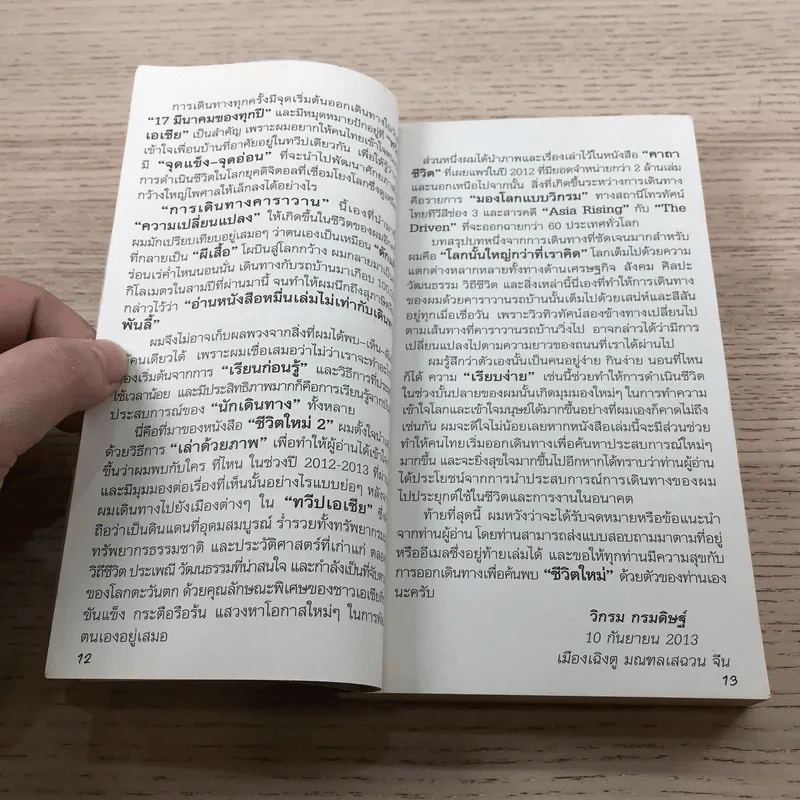 การเดินทางทุกครั้งมีจุดเริ่มต้นออกเดินทางใน
“17 มีนาคมของทุกปี” และมีหมุดหมายปักอยู่ที่
เอเชีย” เป็นสำคัญ เพราะผมอยากให้คนไทยเข้าใจ
เข้าใจเพื่อนบ้านที่อาศัยอยู่ในทวีปเดียวกัน เพื่อให้รู้
มี “จุดแข็ง–จุดอ่อน” ที่จะนำไปพัฒนาศักยภาพ
การดำเนินชีวิตในโลกยุคดิจิตอลที่เชื่อมโยงโลกซึ่งดู
กว้างใหญ่ไพศาลให้เล็กลงได้อย่างไร
“การเดินทางคาราวาน” นี้เองที่นำมา
“ความเปลี่ยนแปลง” ให้เกิดขึ้นในชีวิตของผม
ผมมักเปรียบเทียบอยู่เสมอๆ ว่าตนเองเป็นเหมือน
ที่กลายเป็น “ผีเสื้อ” โผบินสู่โลกกว้าง ผมกลายมาเป็น
ร่อนเร่ค่ำไหนนอนนั่น เดินทางกับรถบ้านมาเกือบ
กิโลเมตรในสามปีที่ผ่านมานี้ จนทำให้ผมนึกถึงสุภาษิต
กล่าวไว้ว่า “อ่านหนังสือหมื่นเล่มไม่เท่ากับเดิน
พันลี้”
ผมจึงไม่อาจเก็บผลพวงจากสิ่งที่ผมได้พบ–เห็น–
คนเดียวได้ เพราะผมเชื่อเสมอว่าไม่ว่าเราจะทำ
เริ่มต้นจากการ “เรียนก่อนรู้” และวิธีการที่
ใช้เวลาน้อย และมีประสิทธิภาพมากก็คือการเรียนรู้จาก
ประสบการณ์ของ “นักเดินทาง” ทั้งหลาย
นี่คือที่มาของหนังสือ “ชีวิตใหม่ 2” ผมตั้งใจนำ
ด้วยวิธีการ “เล่าด้วยภาพ” เพื่อทำให้ผู้อ่านได้เข้าใจ
ขึ้นว่าผมพบกับใคร ที่ไหน ในช่วงปี 2012-2013 ที่
และมีมุมมองต่อเรื่องที่เห็นนั้นอย่างไรแบบย่อๆ
ผมเดินทางไปยังเมืองต่างๆ ใน “ทวีปเอเชีย”
ถือว่าเป็นดินแดนที่อุดมสมบูรณ์ ร่ำรวยทั้งทรัพยากร
ทรัพยากรธรรมชาติ และประวัติศาสตร์ที่เก่าแก่
วิถีชีวิต ประเพณี วัฒนธรรมที่น่าสนใจ และกำลังเป็นที่
ของโลกตะวันตก ด้วยคุณลักษณะพิเศษของชาวเอเชียที่
ขันแข็ง กระตือรือร้น แสวงหาโอกาสใหม่ๆ ในการ
ตนเองอยู่เสมอ
12
ส่วนหนึ่งผมได้นำภาพและเรื่องเล่าไว้ในหนังสือ “คาถา
ชีวิต” ที่เผยแพร่ในปี 2012 ที่มียอดจำหน่ายกว่า 2 ล้านเล่ม
และนอกเหนือไปจากนั้น สิ่งที่เกิดขึ้นระหว่างการเดินทาง
คือรายการ “มองโลกแบบวิกรม” ทางสถานีโทรทัศน์
ไทยทีวีสีช่อง 3 และสารคดี “Asia Rising” กับ “The
Driven” ที่จะออกฉายกว่า 60 ประเทศทั่วโลก
บทสรุปบทหนึ่งจากการเดินทางที่ชัดเจนมากสำหรับ
ผมคือ “โลกนั้นใหญ่กว่าที่เราคิด” โลกเต็มไปด้วยความ
แตกต่างหลากหลายทั้งทางด้านเศรษฐกิจ สังคม ศิลปะ
วัฒนธรรม วิถีชีวิต และสิ่งเหล่านี้นี่เองที่ทำให้การเดินทาง
ของผมด้วยคาราวานรถบ้านนั้นเต็มไปด้วยเสน่ห์และสีสัน
อยู่ทุกเมื่อเชื่อวัน เพราะวิวทิวทัศน์สองข้างทางเปลี่ยนไป
ตามเส้นทางที่คาราวานรถบ้านวิ่งไป อาจกล่าวได้ว่ามีการ
เปลี่ยนแปลงไปตามความยาวของถนนที่เราได้ผ่านไป
ผมรู้สึกว่าตัวเองนั้นเป็นคนอยู่ง่าย กินง่าย นอนที่ไหน
ก็ได้ ความ “เรียบง่าย” เช่นนี้ช่วยทำให้การดำเนินชีวิต
ในช่วงบั้นปลายของผมนั้นเกิดมุมมองใหม่ๆ ในการทำความ
เข้าใจโลกและเข้าใจมนุษย์ได้มากขึ้นอย่างที่ผมเองก็คาดไม่ถึง
เช่นกัน ผมจะดีใจไม่น้อยเลยหากหนังสือเล่มนี้จะมีส่วนช่วย
ทำให้คนไทยเริ่มออกเดินทางเพื่อค้นหาประสบการณ์ใหม่ๆ
มากขึ้น และจะยิ่งสุขใจมากขึ้นไปอีกหากได้ทราบว่าท่านผู้อ่าน
ได้ประโยชน์จากการนำประสบการณ์การเดินทางของผม
ไปประยุกต์ใช้ในชีวิตและการงานในอนาคต
ท้ายที่สุดนี้ ผมหวังว่าจะได้รับจดหมายหรือข้อแนะนำ
จากท่านผู้อ่าน โดยท่านสามารถส่งแบบสอบถามมาตามที่อยู่
หรืออีเมลซึ่งอยู่ท้ายเล่มได้ และขอให้ทุกท่านมีความสุขกับ
การออกเดินทางเพื่อค้นพบ “ชีวิตใหม่” ด้วยตัวของท่านเอง
นะครับ
วิกรม กรมดิษฐ์
10 กันยายน 2013
เมืองเฉิงตู มณฑลเสฉวน จีน
13